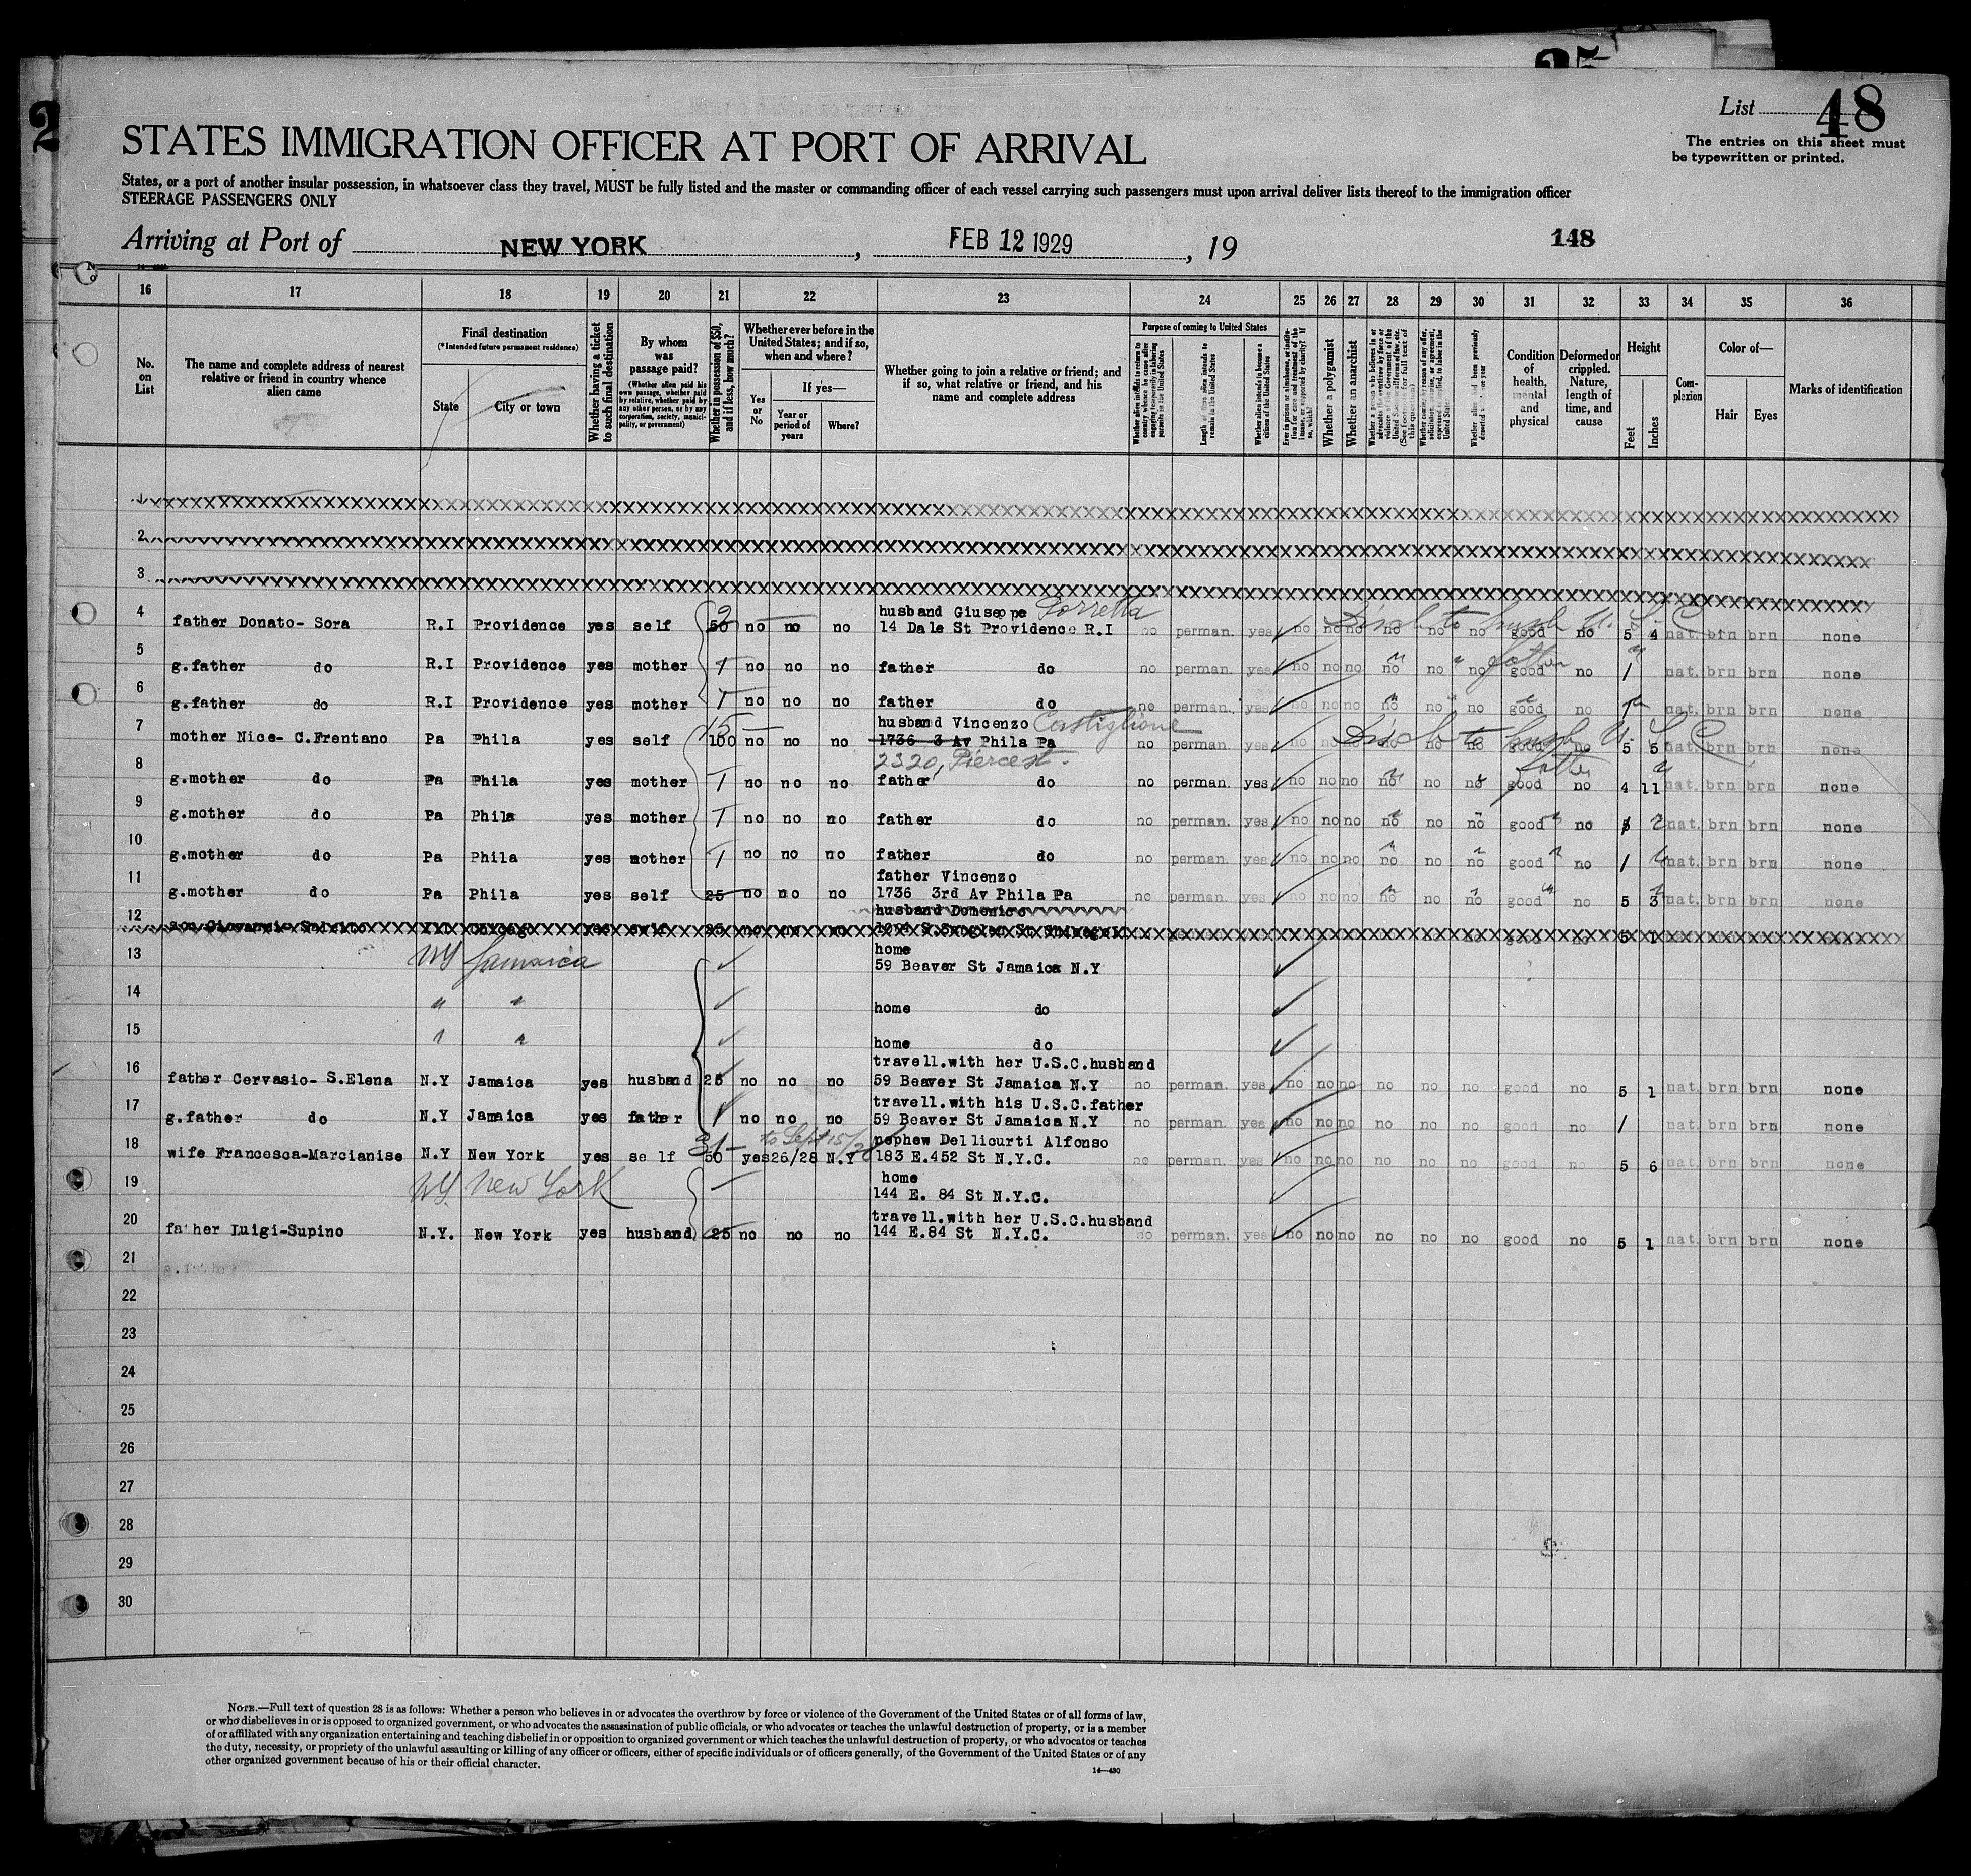 25
2
List 48
The entries on this sheet must
be typewritten or printed.
STATES IMMIGRATION OFFICER AT PORT OF ARRIVAL
States, or a port of another insular possession, in whatsoever class they travel, MUST be fully listed and the master or commanding officer of each vessel carrying such passengers must upon arrival deliver lists thereof to the immigration officer
STEERAGE PASSENGERS ONLY
Arriving at Port of NEW YORK, FEB 12 1929, 19
148
16 17 18 19 20 21 22 23 24 25 26 27 28 29 30 31 32 33 34 35 36
No. on List
The name and complete address of nearest
relative or friend in country whence
alien came
Final destination
(*Intended future permanent residence)
State
City or town
Whether having a ticket
to such final destination
By whom
was
passage paid?
(Whether alien paid his
own passage, whether paid
by relative, whether paid by
any other person, or by any
corporation, society, munici-
pality, or government)
Whether in possession of $50,
and if less, how much?
Whether ever before in the
United States; and if so,
when and where?
Yes or No
If yes—
Year or
period of
years
Where?
Whether going to join a relative or friend; and
if so, what relative or friend, and his
name and complete address
Purpose of coming to United States
Length of time alien intends to
remain in the United States
Whether alien intends to become a
citizen of the United States
Whether a polygamist
Whether an anarchist
Condition
of
health,
mental
and
physical
Deformed or
crippled.
Nature,
length of
time, and
cause
Height
Feet
Inches
Com-
plexion
Color of—
Hair
Eyes
Marks of identification
1
2
3
husband Giuseppe Sorretta
4 father Donato- Sora R.I Providence yes self 50 no no no 14 Dale St Providence R.I no perman. yes no no no no no no good no 5 4 nat. brn brn none
5 g.father do R.I Providence yes mother / no no no father do no perman. yes no no no no no no good no / nat. brn brn none
6 g.father do R.I Providence yes mother / no no no father do no perman. yes no no no no no no good no nat. brn brn none
husband Vincenzo Castiglione
7 mother Nice- C.Frentano Pa Phila yes self 100 no no no 1736 3 Av Phila Pa no perman. yes no no no no no no good no 5 5 nat. brn brn none
2320, Pierce st.
8 g.mother do Pa Phila yes mother / no no no father do no perman. yes no no no no no no good no 4 11 nat. brn brn none
9 g.mother do Pa Phila yes mother / no no no father do no perman. yes no no no no no no good no 2 nat. brn brn none
10 g.mother do Pa Phila yes mother / no no no father do no perman. yes no no no no no no good no / nat. brn brn none
father Vincenzo
11 g.mother do Pa Phila yes self 25 no no no 1736 3rd Av Phila Pa no perman. yes no no no no no no good no 5 3 nat. brn brn none
husband Domenico
12
home
13 NY Jamaica 59 Beaver St Jamaica N.Y
14 " " home do
15 " " home do
travell.with her U.S.C.husband
16 father Cervasio- S.Elena N.Y Jamaica yes husband 25 no no no 59 Beaver St Jamaica N.Y no perman. yes no no no no no no good no 5 1 nat. brn brn none
travell.with his U.S.C.father
17 g.father do N.Y Jamaica yes father / no no no 59 Beaver St Jamaica N.Y no perman. yes no no no no no no good no / nat. brn brn none
to Sept 15/28 nephew Dellicurti Alfonso
18 wife Francesca-Marcianise N.Y New York yes self 50 yes 26/28 N.Y 183 E.452 St N.Y.C. no perman. yes no no no no no no good no 5 6 nat. brn brn none
home
19 NY New York 144 E. 84 St N.Y.C.
travell.with her U.S.C.husband
20 father Luigi-Supino N.Y. New York yes husband 25 no no no 144 E.84 St N.Y.C. no perman. yes no no no no no no good no 5 1 nat. brn brn none
21
22
23
24
25
26
27
28
29
30
NOTE.—Full text of question 28 is as follows: Whether a person who believes in or advocates the overthrow by force or violence of the Government of the United States or of all forms of law,
or who disbelieves in or is opposed to organized government, or who advocates the assassination of public officials, or who advocates or teaches the unlawful destruction of property, or is a member
of or affiliated with any organization entertaining and teaching disbelief in or opposition to organized government or which teaches the unlawful destruction of property, or who advocates or teaches
the duty, necessity, or propriety of the unlawful assaulting or killing of any officer or officers, either of specific individuals or of officers generally, of the Government of the United States or of any
other organized government because of his or their official character.
14—430